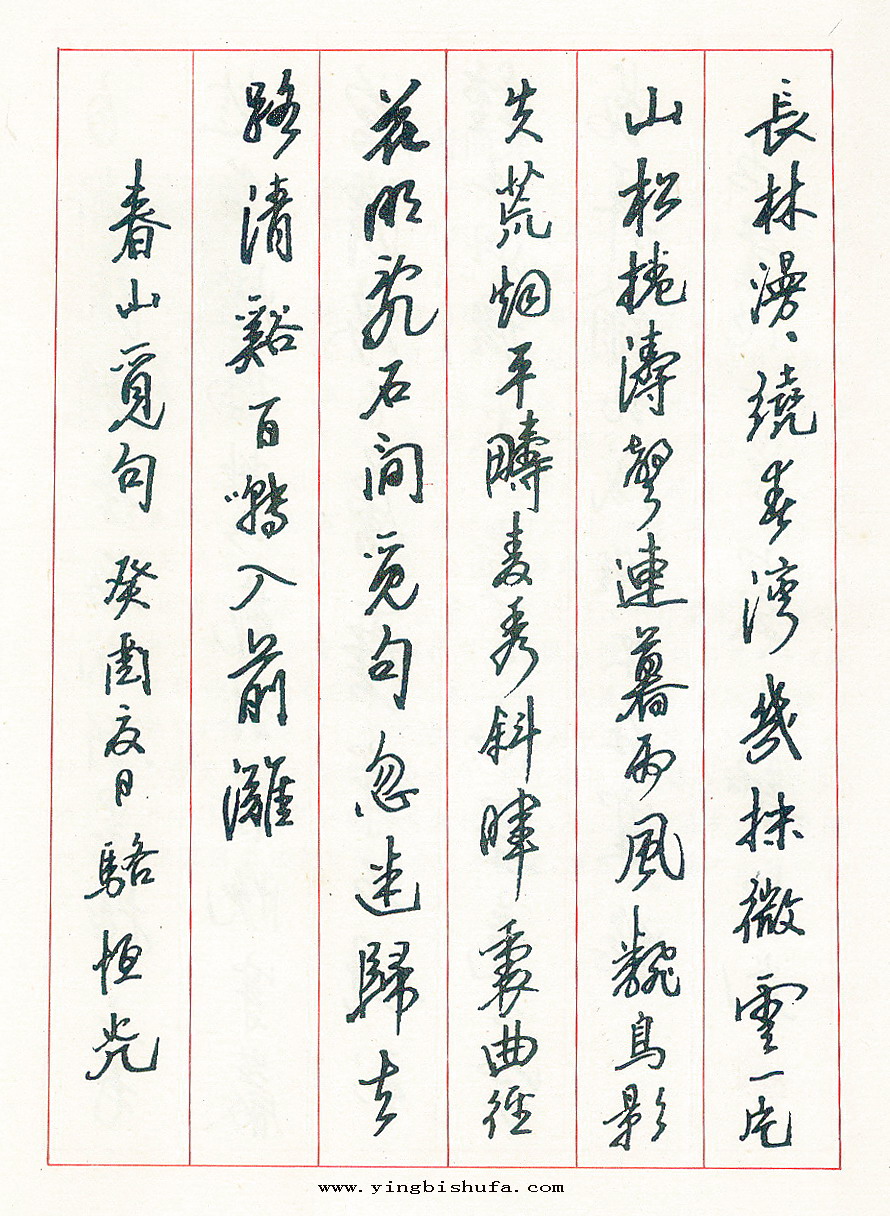 長林漫〻繞春灣幾抹微雲一片
山松捲濤聲連暮雨風飜鳥影
失荒烟平疇麦秀斜暉裏曲径
花明亂石間覓句忽迷歸去
路清谿百囀入前灘
春山覓句 癸酉夏日 駱恒光
www.yingbishufa.com